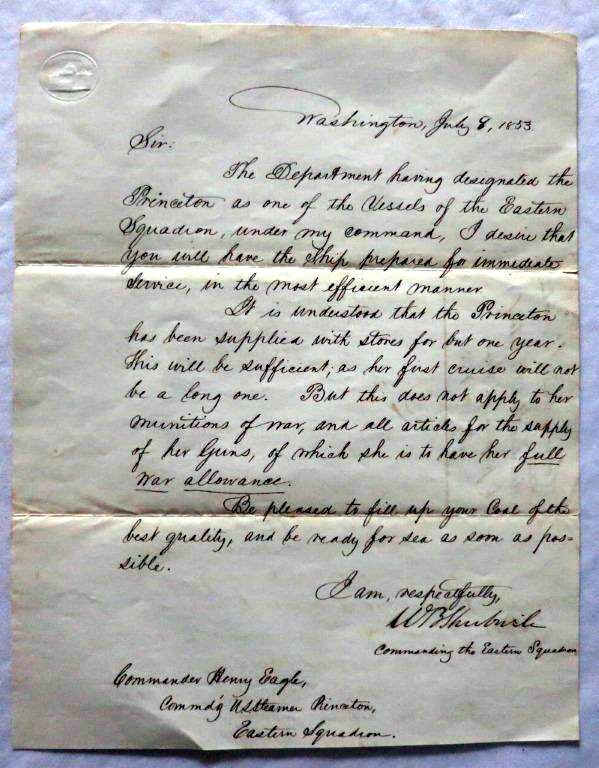 Washington, July 8, 1853.
Sir:
The Department having designated the
Princeton as one of the Vessels of the Eastern
Squadron, under my command, I desire that
you will have the Ship prepared for immediate
service, in the most efficient manner
It is understood that the Princeton
has been supplied with stores for but one year.
This will be sufficient, as her first cruise will not
be a long one. But this does not apply to her
munitions of war, and all articles for the supply
of her Guns, of which she is to have her full
war allowance.
Be pleased to fill up your Coal of the
best quality, and be ready for sea as soon as pos-
sible.
I am, respectfully,
W B Shubrick
Commanding the Eastern Squadron
Commander Henry Eagle,
Commdg US Steamer Princeton,
Eastern Squadron.